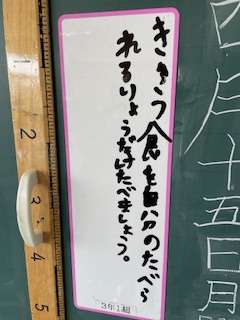 四月十五日月
きゅう食を自分のたべら
れるりょうだけたべましょう。
3年1組
2
3
4
5